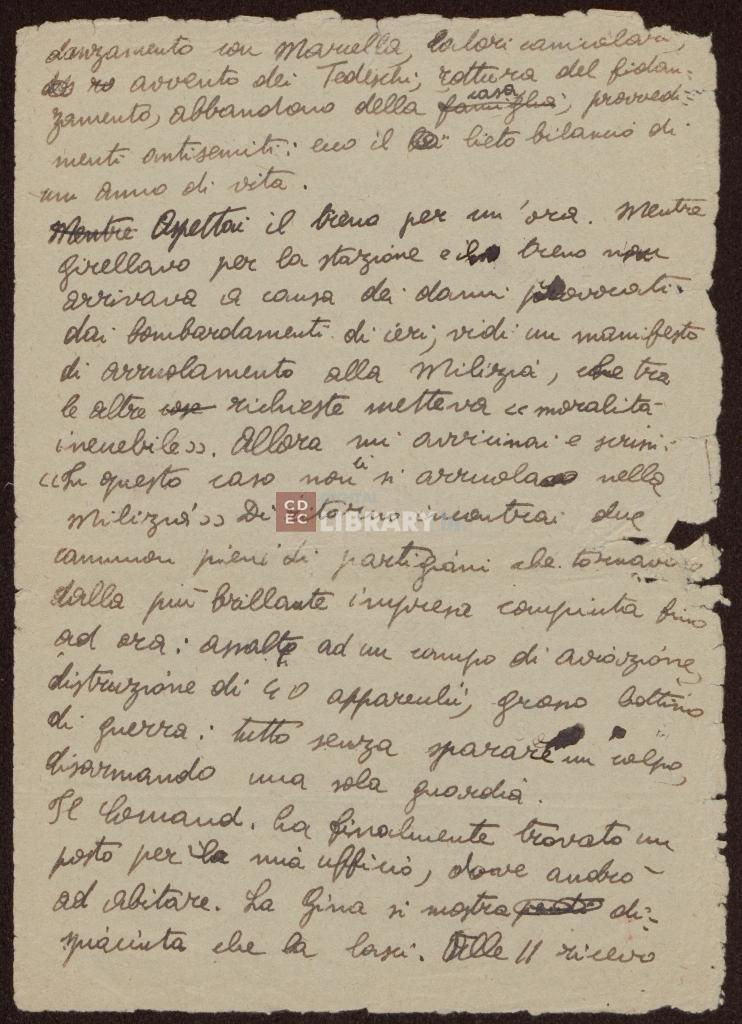 danzamento con Marcella, Calori camicolari,
avvento dei Tedeschi, rottura del fidan-
zamento, abbandono della casa famiglia, provvedi-
menti antisemiti: ecco il lieto bilancio di
un anno di vita.
Mentre Aspettai il treno per un'ora. Mentre
girellavo per la stazione e il treno non
arrivava a causa dei danni provocati
dai bombardamenti di ieri, vidi un manifesto
di arruolamento alla Milizia, che tra
le altre cose richieste metteva «moralità
inecebile». Allora mi avvicinai e scrissi:
«In questo caso non ti si arruola nella
Milizia» Di ritorno incontrai due
CDEC DIGITAL LIBRARY
cammion pieni di partigiani che tornavano
dalla più brillante impresa compiuta fino
ad ora: assalto ad un campo di aviazione,
distruzione di 40 apparecchi, grosso bottino
di guerra: tutto senza sparare un colpo,
disarmando una sola guardia.
Il Comand. ha finalmente trovato un
posto per la mia ufficio, dove andrò
ad abitare. La Gina si mostra di-
spiaciuta che la lasci. Alle 11 ricevo